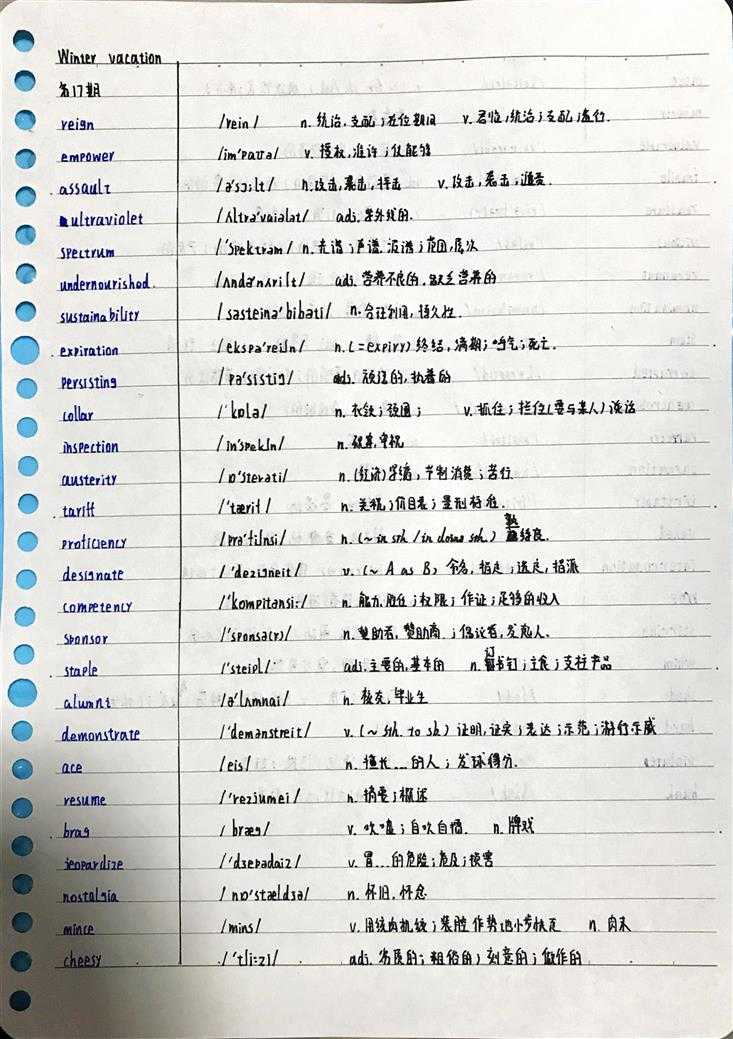 Winter vacation
第17期
reign /rein/ n. 统治,支配;在位期间 v. 君临,统治;支配;盛行.
empower /im'paʊə/ v. 授权,准许;使能够
assault /ə'sɔ:lt/ n.攻击,袭击,抨击 v. 攻击,袭击;
ultraviolet /ʌltrə'vaiələt/ adj. 紫外线的.
spectrum /'spektrəm/ n. 光谱;声谱.波谱;范围,层次
undernourished. /ʌndə'nʌriʃt/ adj. 营养不良的.缺乏营养的
sustainability /səsteinə'bibəti/ n. 合理利用,持久性.
expiration /ekspə'reiʃn/ n.(=expiry) 终结,满期;呼气;死亡.
persisting /pə'sistiŋ/ adj. 顽强的,执着的
collar /'kɒlə/ n. 衣领;项圈; v. 抓住;拦住(要与某人)谈话
inspection /in'spekʃn/ n. 视察
austerity /ɒ'sterəti/ n.(经济)紧缩,节制消费;苦行
tariff /'tærif/ n. 关税;价目表;量刑标准.
proficiency /prə'fiʃnsi/ n. (~ in sth./in doing sth.) 熟练
designate /'dezigneit/ v. (~ A as B) 命名,指定;选定,指派
competency /'kɒmpitənsi:/ n. 能力,胜任;权限;作证;足够的收入
sponsor /'spɒnsə(r)/ n. 赞助者,赞助商;倡议者,发起人.
staple /'steipl/ adj. 主要的,基本的 n. 订书钉;主食;支柱产品
alumni /ə'lʌmnai/ n. 校友,毕业生
demonstrate /'demənstreit/ v. (~ sth. to sb.) 证明,证实;表达;示范;游行示威
ace /eis/ n. 擅长...的人;发球得分.
resume /'rezjumei/ n. 摘要;概述
brag /bræg/ v. 吹嘘;自吹自擂. n. 牌戏
jeopardize /'dʒepədaiz/ v. 冒...的危险;危及;损害
nostalgia /nɒ'stældʒə/ n. 怀旧,怀念
mince /mins/ v. 用绞肉机绞;装腔作势地小步快走 n. 肉末
cheesy /'tʃi:zi/ adj. 劣质的;粗俗的;刻意的;做作的